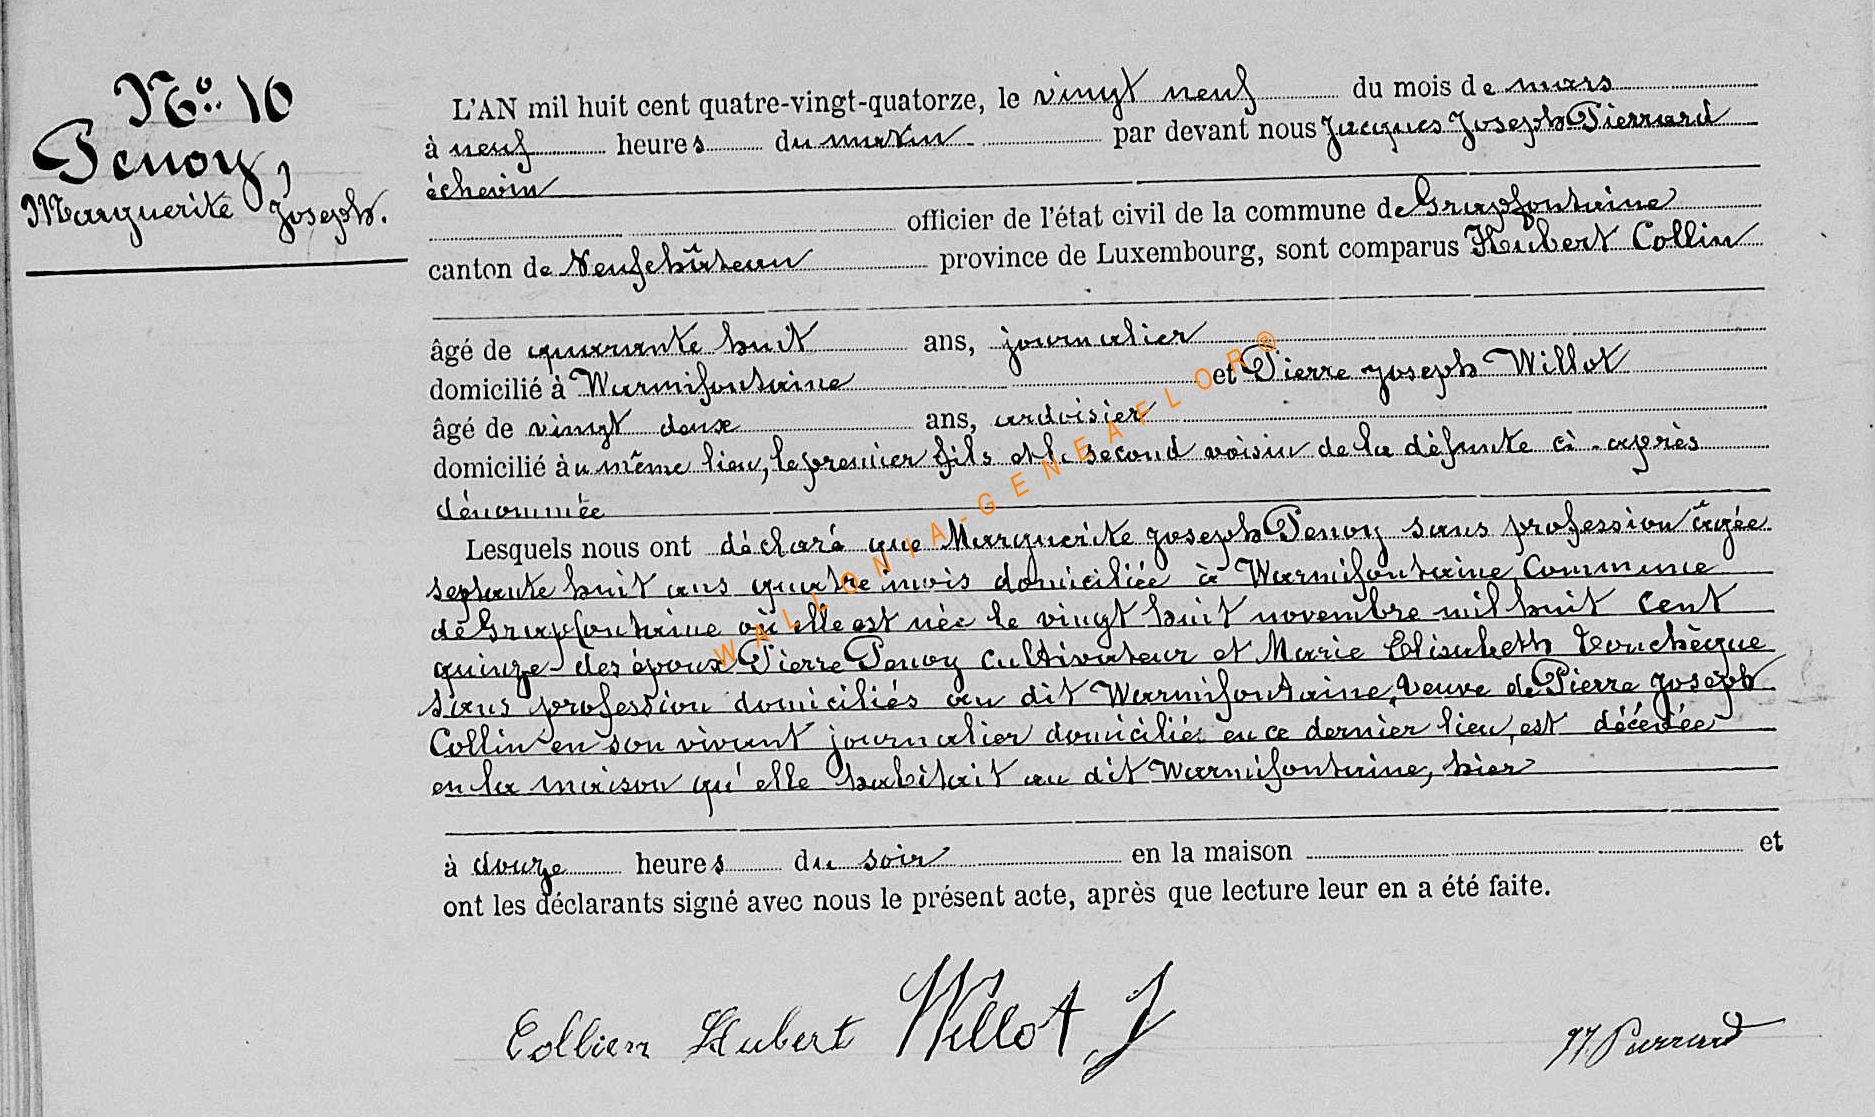 N° 10
Penoy,
Marguerite Joseph.
L'AN mil huit cent quatre-vingt-quatorze, le vingt neuf du mois de mars
à neuf heures du matin par devant nous Jacques Joseph Pierrard
échevin
officier de l'état civil de la commune de Grapfontaine
canton de Neufchâteau province de Luxembourg, sont comparus Hubert Collin
âgé de quarante huit ans, journalier
domicilié à Warmifontaine et Pierre Joseph Willot
âgé de vingt deux ans, ardoisier
domicilié au même lieu, le premier fils et le second voisin de la défunte ci-après
dénommée
Lesquels nous ont déclaré que Marguerite Joseph Penoy sans profession âgée
septante huit ans quatre mois domiciliée à Warmifontaine, Commune
de Grapfontaine où elle est née le vingt huit novembre mil huit cent
quinze des époux Pierre Penoy cultivateur et Marie Elisabeth Touchèque
sans profession domiciliés au dit Warmifontaine, Veuve de Pierre Joseph
Collin en son vivant journalier domicilié en ce dernier lieu, est décédée
en la maison qu'elle habitait au dit Warmifontaine, hier
à douze heures du soir en la maison et
ont les déclarants signé avec nous le présent acte, après que lecture leur en a été faite.
Collien Hubert Willot J
WALLONIA-GENEAFLOR®